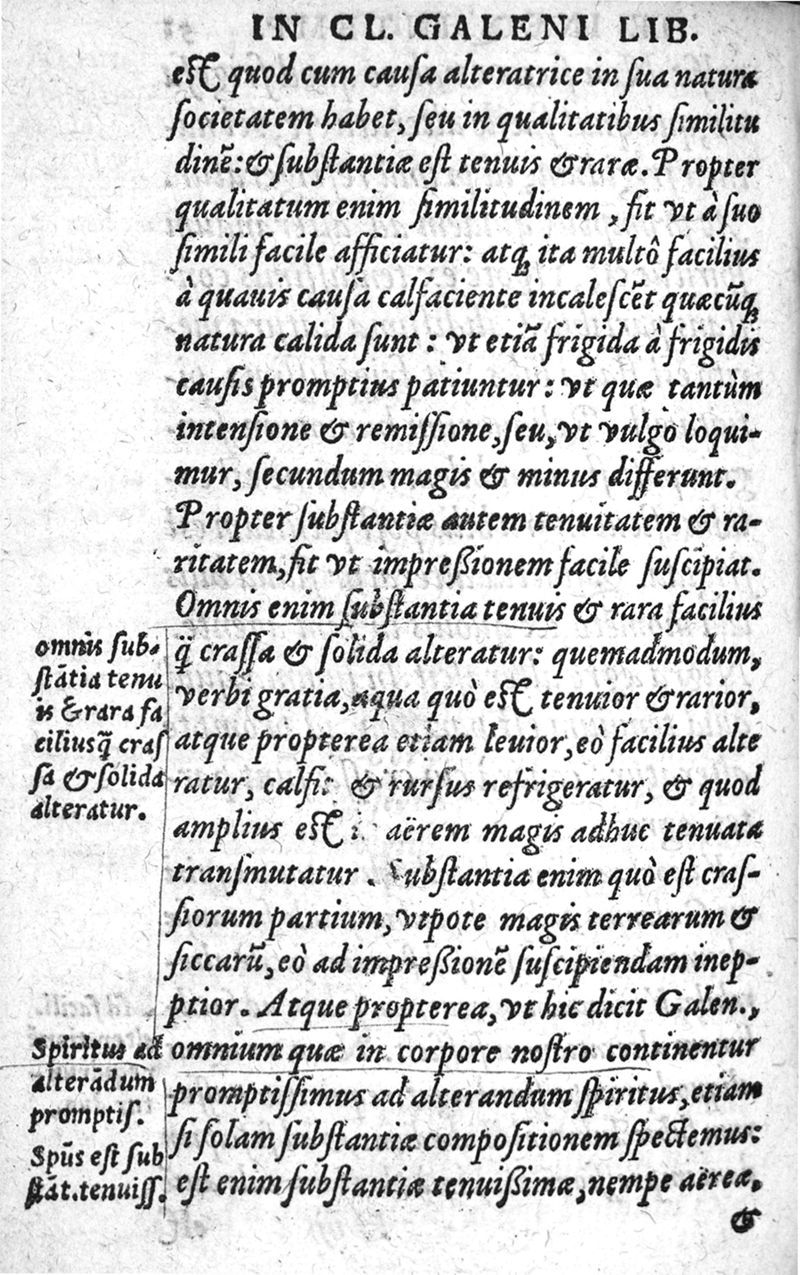 IN CL. GALENI LIB.
est quod cum causa alteratrice in sua natura
societatem habet, seu in qualitatibus similitu
dinē: & substantiæ est tenuis & raræ. Propter
qualitatum enim similitudinem, fit vt à suo
simili facile afficiatur: atq; ita multô facilius
à quauis causa calfaciente incalescēt quæcūq;
natura calida sunt: vt etiā frigida à frigidis
causis promptius patiuntur: vt quæ tantùm
intensione & remissione, seu, vt vulgo loqui-
mur, secundum magis & minus differunt.
Propter substantiæ autem tenuitatem & ra-
ritatem, fit vt impreßionem facile suscipiat.
Omnis enim substantia tenuis & rara facilius
q̃ crassa & solida alteratur: quemadmodum,
verbi gratia, aqua quò est tenuior & rarior,
atque propterea etiam leuior, eò facilius alte
ratur, calfit & rursus refrigeratur, & quod
amplius est i aërem magis adhuc tenuata
transmutatur. Substantia enim quò est cras-
siorum partium, vtpote magis terrearum &
siccarū, eò ad impreßionē suscipiendam inep-
ptior. Atque propterea, vt hic dicit Galen.,
omnium quæ in corpore nostro continentur
promptissimus ad alterandum spiritus, etiam
si solam substantiæ compositionem spectemus:
est enim substantiæ tenuißimæ, nempe aëreæ,
&
omnis sub-
stātia tenu
is & rara fa
ciliusq̃ cras
sa & solida
alteratur.
Spiritus ad
alterādum
promptis.
Spūs est sub
stāt. tenuiss.